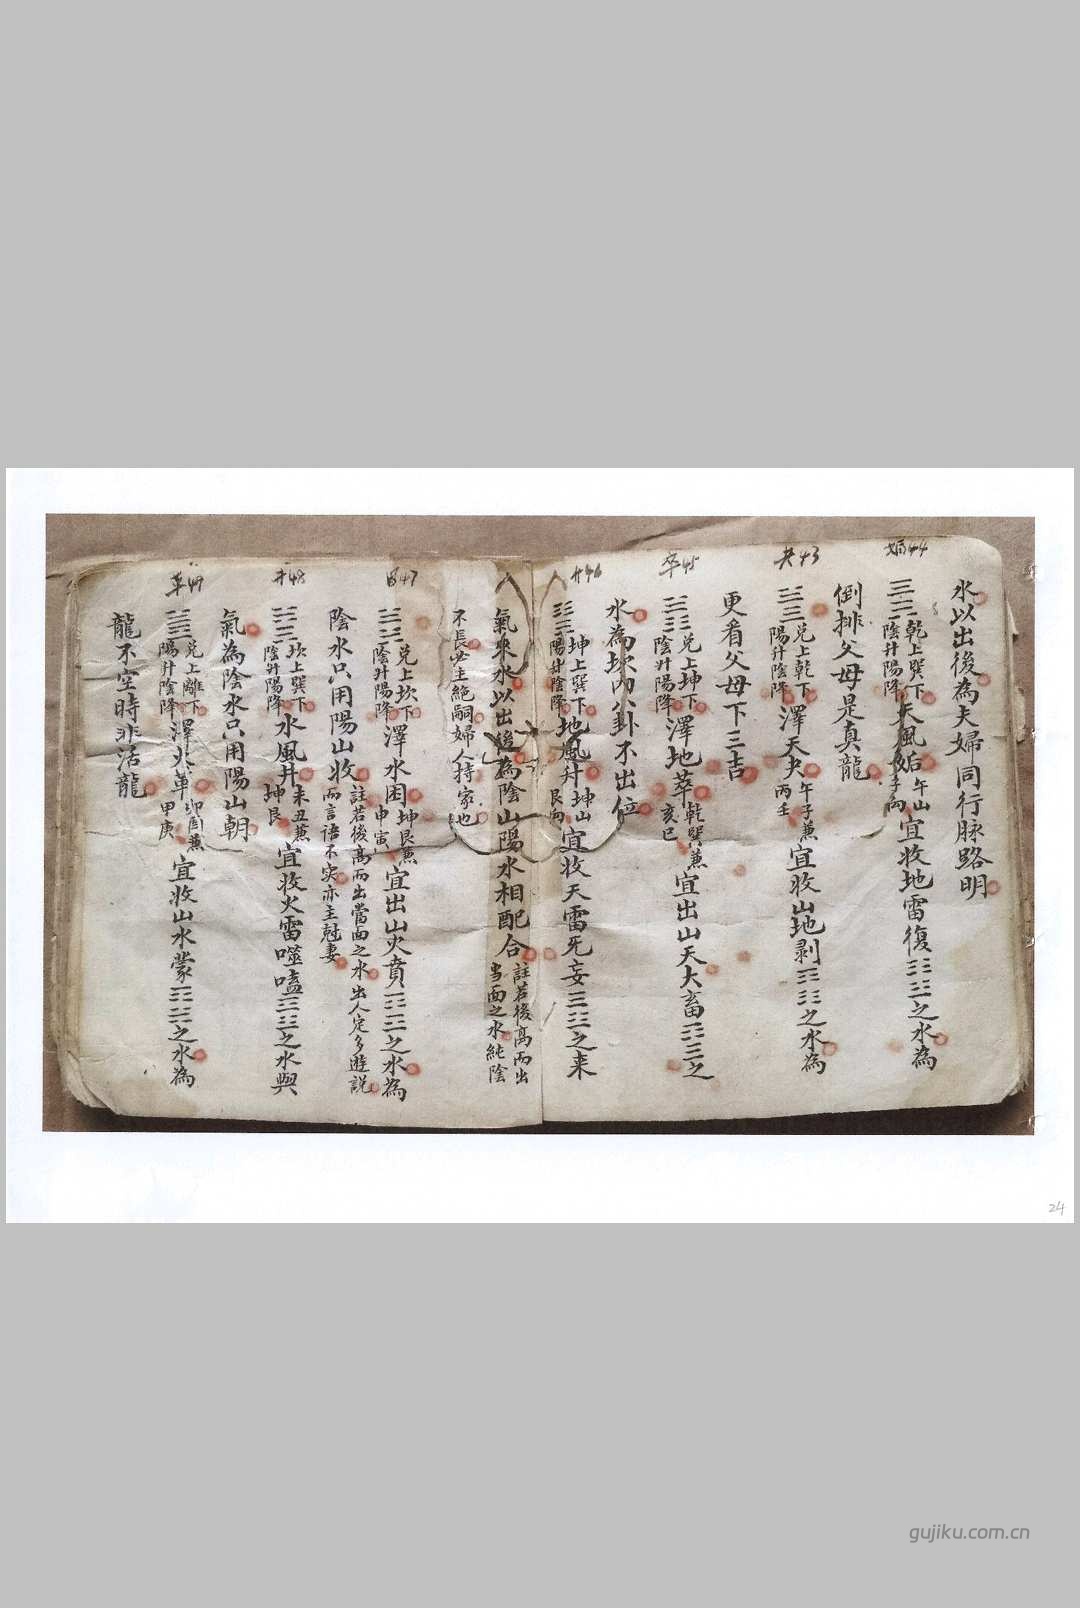 水以出後為夫婦同行脉路明
姤44
乾上巽下
陰升陽降
天風姤
午山
子向
宜收地雷復之水為
倒排父母是真龍
夬43
兑上乾下
陽升陰降
澤天夬
午子兼
丙壬
宜收山地剥之水為
更看父母下三吉
萃45
兑上坤下
陰升陽降
澤地萃
乾巽兼
亥巳
宜出山天大畜之
水為坎内八卦不出位
升46
坤上巽下
陽升陰降
地風升
坤山
艮向
宜收天雷旡妄之来
氣來水以出後為陰山陽水相配合
註若後高而出
当面之水純陰
不長必主絕嗣婦人持家也
困47
兑上坎下
陰升陽降
澤水困
坤艮兼
申寅
宜出山火賁之水為
陰水只用陽山收
註若後高而出當面之水出人定多遊説
而言語不实亦主尅妻
井48
坎上巽下
陰升陽降
水風井
未丑兼
坤艮
宜收火雷噬嗑之水與
氣為陰水只用陽山朝
革49
兑上離下
陽升陰降
澤火革
卯酉兼
甲庚
宜收山水蒙之水為
龍不空時非活龍
24
gujiku.com.cn